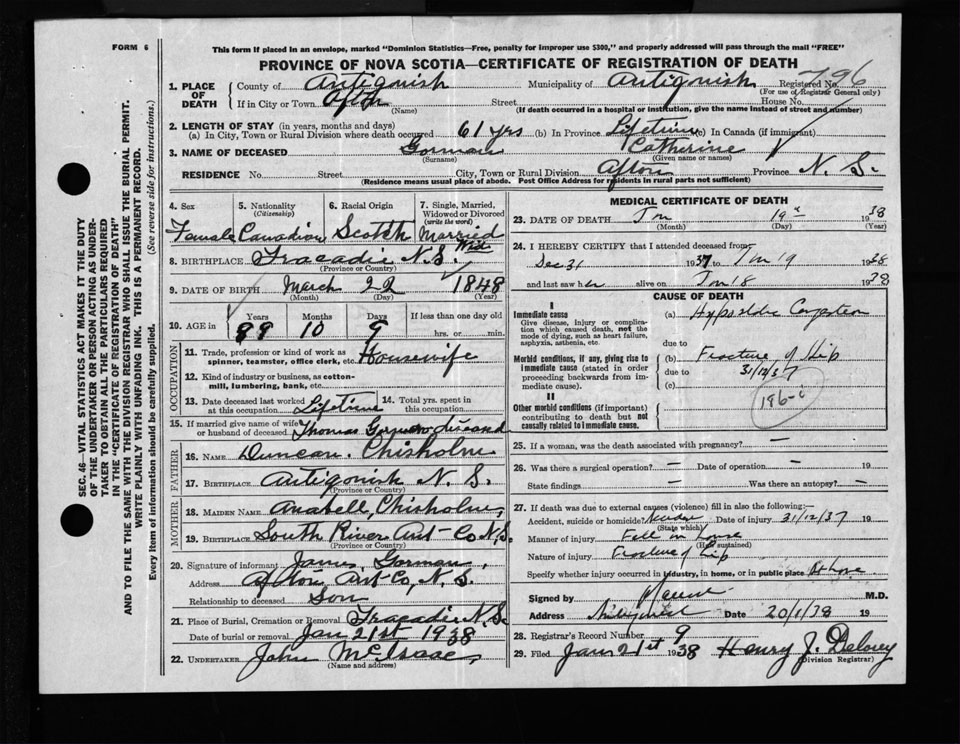 FORM 6
This form if placed in an envelope, marked "Dominion Statistics—Free, penalty for improper use $300," and properly addressed will pass through the mail "FREE"
PROVINCE OF NOVA SCOTIA—CERTIFICATE OF REGISTRATION OF DEATH
1. PLACE OF DEATH
County of Antigonish Municipality of Antigonish Registered No. 796
(For use of Registrar General only)
If in City or Town Afton Street House No.
(Name) (If death occurred in a hospital or institution, give the name instead of street and number)
2. LENGTH OF STAY (in years, months and days)
(a) In City, Town or Rural Division where death occurred 61 yrs (b) In Province Lifetime (c) In Canada (if immigrant)
3. NAME OF DECEASED Gorman Catherine
(Surname) (Given name or names)
RESIDENCE No. Street City, Town or Rural Division Afton Province N. S.
(Residence means usual place of abode. Post Office Address for residents in rural parts not sufficient)
SEC. 46—VITAL STATISTICS ACT MAKES IT THE DUTY
OF THE UNDERTAKER OR PERSON ACTING AS UNDER-
TAKER TO OBTAIN ALL THE PARTICULARS REQUIRED
IN THE "CERTIFICATE OF REGISTRATION OF DEATH"
AND TO FILE THE SAME WITH THE DIVISION REGISTRAR WHO SHALL ISSUE THE BURIAL PERMIT.
WRITE PLAINLY WITH UNFADING INK. THIS IS A PERMANENT RECORD.
Every item of information should be carefully supplied. (See reverse side for instructions.)
4. Sex Female
5. Nationality (Citizenship) Canadian
6. Racial Origin Scotch
7. Single, Married, Widowed or Divorced (write the word) Married Wid
8. BIRTHPLACE Tracadie N.S.
(Province or Country)
9. DATE OF BIRTH March 22 1848
(Month) (Day) (Year)
10. AGE in Years Months Days If less than one day old
89 10 9 hrs. or min.
OCCUPATION
11. Trade, profession or kind of work as spinner, teamster, office clerk, etc. Housewife
12. Kind of industry or business, as cotton-mill, lumbering, bank, etc.
13. Date deceased last worked at this occupation Lifetime
14. Total yrs. spent in this occupation
15. If married give name of wife or husband of deceased Thomas Gorman deceased
FATHER
16. NAME Duncan Chisholm
17. BIRTHPLACE Antigonish N. S.
(Province or Country)
MOTHER
18. MAIDEN NAME Anabell Chisholm
19. BIRTHPLACE South River Ant-Co N.S.
(Province or Country)
20. Signature of informant James Gorman
Address Afton, Ant-Co, N. S.
Relationship to deceased Son
21. Place of Burial, Cremation or Removal Tracadie N.S.
Date of burial or removal Jan 21st 1938
22. UNDERTAKER John McIsaac
(Name and address)
MEDICAL CERTIFICATE OF DEATH
23. DATE OF DEATH Jan 19th 1938
(Month) (Day) (Year)
24. I HEREBY CERTIFY that I attended deceased from:
Dec 31 1937 to Jan 19 1938
and last saw her alive on Jan 18 1938
CAUSE OF DEATH
I
Immediate cause
Give disease, injury or complication which caused death, not the mode of dying, such as heart failure, asphyxia, asthenia, etc.
(a) Hypostatic Congestion
due to
Morbid conditions, if any, giving rise to immediate cause (stated in order proceeding backwards from immediate cause).
(b) Fracture of Hip
due to 31/12/37
(c)
196-
II
Other morbid conditions (if important) contributing to death but not causally related to immediate cause.
25. If a woman, was the death associated with pregnancy? —
26. Was there a surgical operation? — Date of operation — 19
State findings — Was there an autopsy? —
27. If death was due to external causes (violence) fill in also the following:—
Accident, suicide or homicide? Date of injury 31/12/37 19
(State which)
Manner of injury Fall in house
(How sustained)
Nature of injury Fracture of Hip
Specify whether injury occurred in industry, in home, or in public place At home
Signed by M.D.
Address Antigonish Date 20/1/38 19
28. Registrar's Record Number 9
29. Filed Jan 21st 1938 Henry J. Delorey
(Division Registrar)